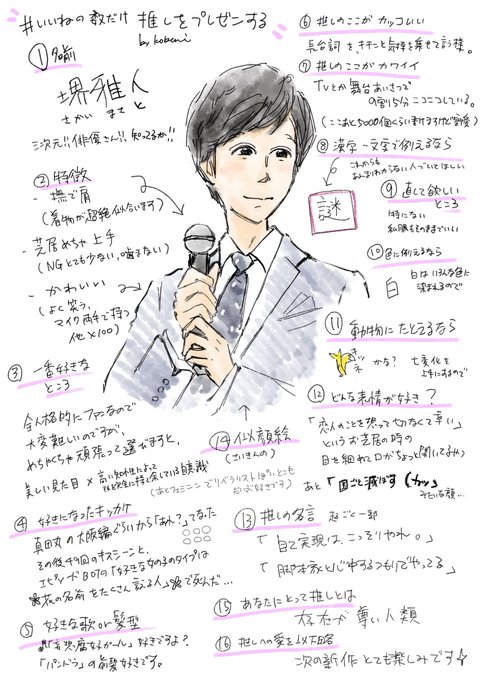 #いいねの数だけ 推しをプレゼンする
by koberi
① 名前
堺 雅人
さかい まさと
三次元!! 俳優さん!! 知ってるか!!
② 特徴
- 撫で肩
(着物が超絶似合います)
- 芝居めちゃ上手
(NGとても少ない、噛まない)
- かわいい
(よく笑う、
マイク両手で持つ
他×100)
③ 一番好きな
ところ
全人格的にファンなので
大変難しいのですが、
めちゃくちゃ頑張って選びますと、
美しい見た目 × 高い知性によって
(あとフェミニンでリベラリストぽいとこも
だいぶ好きです)
④ 好きになったキッカケ
真田丸の大阪編ぐらいから「あれ?」てなった
その後49回のキスシーンと、
「好きな女の子のタイプは
花の名前をたくさん言える人」で死んだ…
⑤ 好きな歌or髪型
好きですよ?
「パンドラ」の前髪好きです。
⑥ 推しのここがカッコいい
長台詞をキチンと気持ち乗せて言う様。
⑦ 推しのここがカワイイ
TVとか舞台あいさつで
9割5分ニコニコしている。
(ここあと5000個くらい書けますけど割愛)
⑧ 漢字一文字で例えるなら
これからも
よくわからない人でいてほしい
謎
⑨ 直して欲しい
ところ
特にない
私服もそのままでいい
⑩ 色に例えるなら
白
白はいろんな色に
染まれるので
⑪ 動物にたとえるなら
キツネ
かな? 七変化を
上手にするので
⑫ どんな表情が好き?
「恋人のことを想って切なくて辛い」
というお芝居の時の
目を細めて口がちょっと開いてるやつ
あと「国ごと滅ぼす(カッ」
みたいな顔…
⑬ 推しの名言
「自己実現は、こっそりやれ。」
「脚本家と心中するつもりでやってる」
⑭ 似顔絵
(さいきんの)
⑮ あなたにとって推しとは
存在が尊い人類
⑯ 推しへの愛を以下略
次の新作とても楽しみです☆